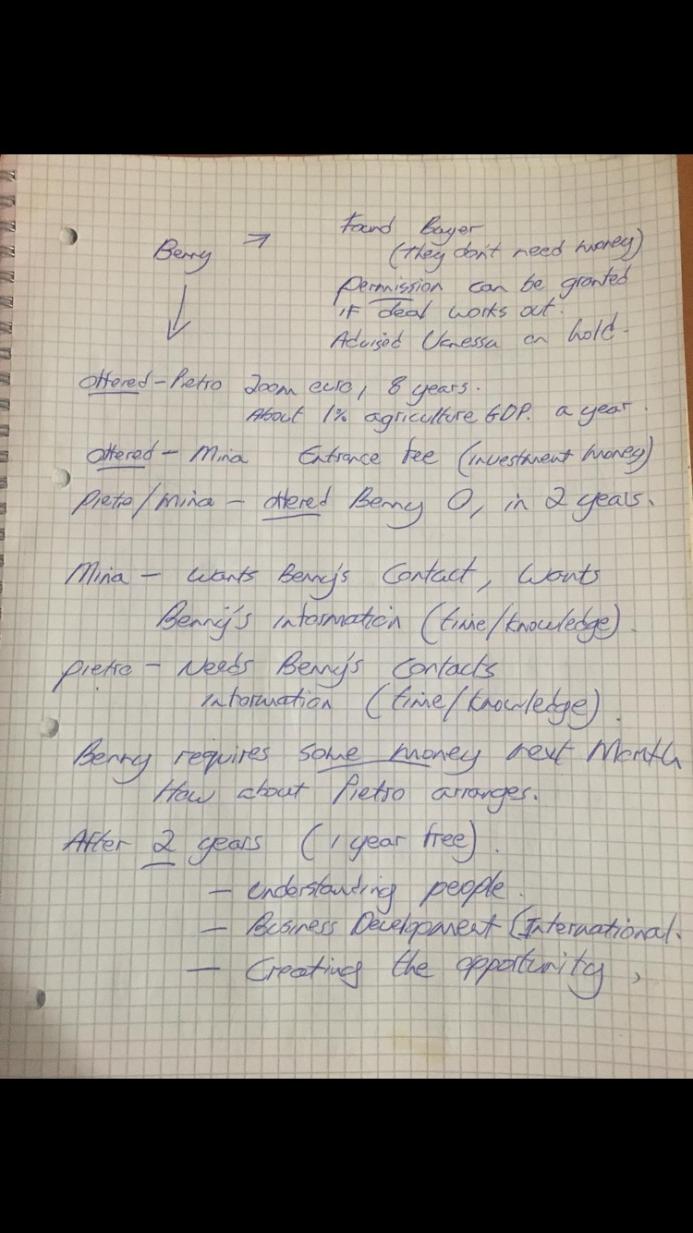 Benny → Found Buyer
(they don't need money)
permission can be granted
if deal works out.
Advised Vanessa on hold.
offered - Pietro 200m euro, 8 years.
About 1% agriculture GDP. a year.
offered - Mina Entrance fee (investment money)
Pietro/Mina - offered Benny 0, in 2 years.
Mina - wants Benny's Contact, wants
Benny's information (time/knowledge).
pietro - Needs Benny's contacts
information (time/knowledge).
Benny requires some money next Month
How about Pietro arranges.
After 2 years (1 year free).
- understanding people.
- Business Development (International.
- Creating the opportunity,